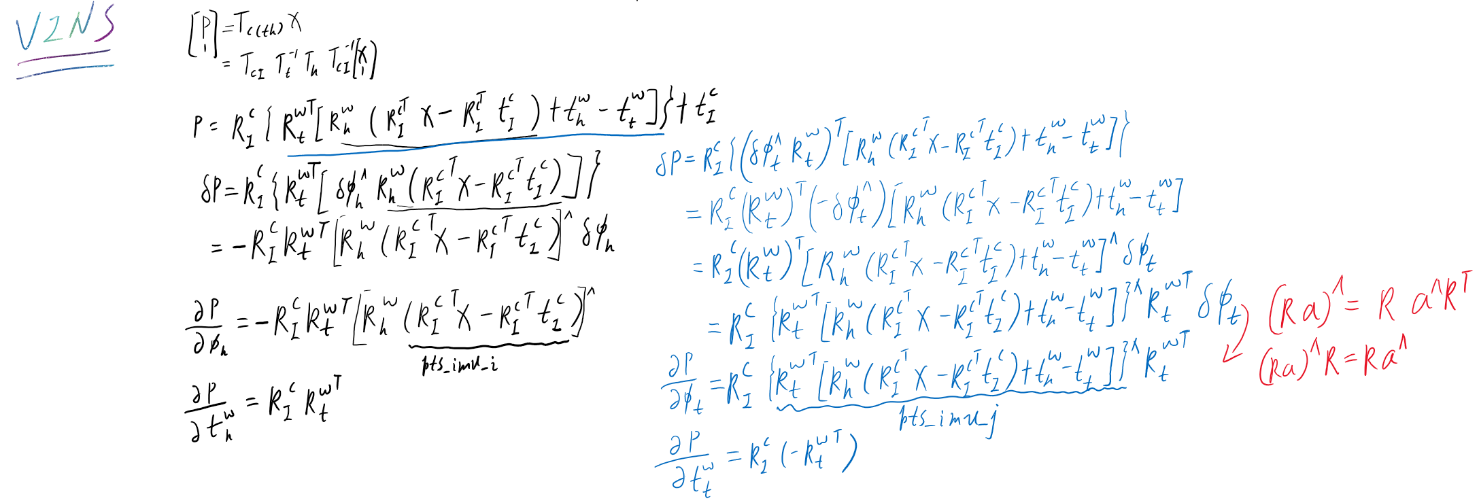 VINS
[P 1] = T_{c(th)} X
= T_{cI} T_t^{-1} T_h T_{cI}^{-1} [X 1]
P = R_I^c { R_t^{wT} [ R_h^w ( R_I^{cT} X − R_I^{cT} t_I^c ) + t_h^w − t_t^w ] } + t_I^c
δP = R_I^c { R_t^{wT} [ δϕ_h^∧ R_h^w ( R_I^{cT} X − R_I^{cT} t_I^c ) ] }
= −R_I^c R_t^{wT} [ R_h^w ( R_I^{cT} X − R_I^{cT} t_I^c ) ]^∧ δϕ_h
∂P/∂ϕ_h = −R_I^c R_t^{wT} [ R_h^w ( R_I^{cT} X − R_I^{cT} t_I^c ) ]^∧
pts_imu_i
∂P/∂t_h^w = R_I^c R_t^{wT}
δP = R_I^c { ( δϕ_t^∧ R_t^w )^T [ R_h^w ( R_I^{cT} X − R_I^{cT} t_I^c ) + t_h^w − t_t^w ] }
= R_I^c ( R_t^w )^T ( −δϕ_t^∧ ) [ R_h^w ( R_I^{cT} X − R_I^{cT} t_I^c ) + t_h^w − t_t^w ]
= R_I^c ( R_t^w )^T [ R_h^w ( R_I^{cT} X − R_I^{cT} t_I^c ) + t_h^w − t_t^w ]^∧ δϕ_t
= R_I^c { R_t^{wT} [ R_h^w ( R_I^{cT} X − R_I^{cT} t_I^c ) + t_h^w − t_t^w ] }^∧ R_t^{wT} δϕ_t
∂P/∂ϕ_t = R_I^c { R_t^{wT} [ R_h^w ( R_I^{cT} X − R_I^{cT} t_I^c ) + t_h^w − t_t^w ] }^∧ R_t^{wT}
pts_imu_j
∂P/∂t_t^w = R_I^c ( −R_t^{wT} )
(Ra)^∧ = R a^∧ R^T
(Ra)^∧ R = R a^∧